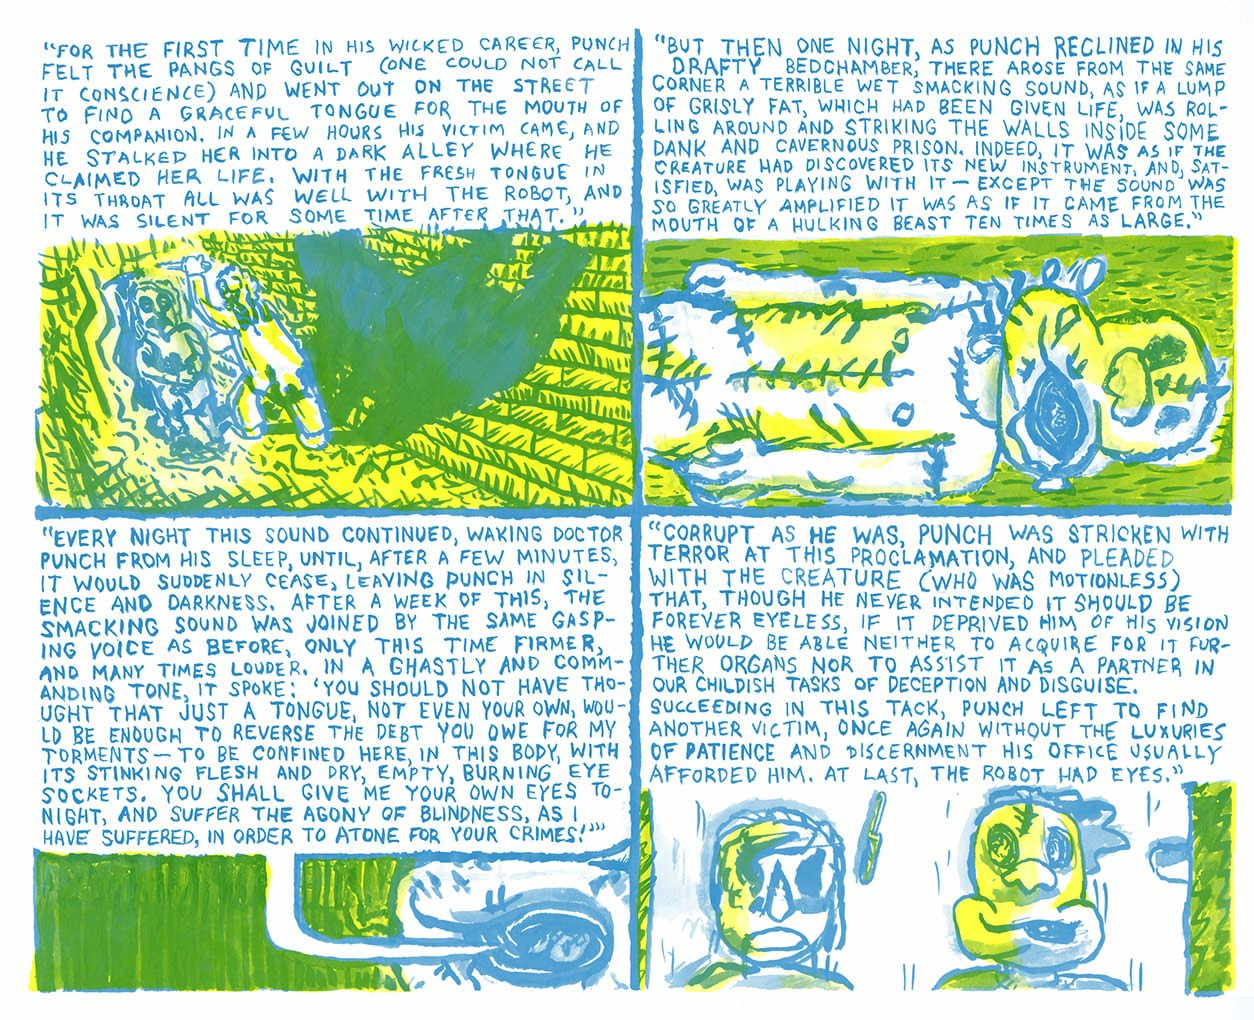 "FOR THE FIRST TIME IN HIS WICKED CAREER, PUNCH
FELT THE PANGS OF GUILT (ONE COULD NOT CALL
IT CONSCIENCE) AND WENT OUT ON THE STREET
TO FIND A GRACEFUL TONGUE FOR THE MOUTH OF
HIS COMPANION. IN A FEW HOURS HIS VICTIM CAME, AND
HE STALKED HER INTO A DARK ALLEY WHERE HE
CLAIMED HER LIFE. WITH THE FRESH TONGUE IN
ITS THROAT ALL WAS WELL WITH THE ROBOT, AND
IT WAS SILENT FOR SOME TIME AFTER THAT."
"BUT THEN ONE NIGHT, AS PUNCH RECLINED IN HIS
DRAFTY BEDCHAMBER, THERE AROSE FROM THE SAME
CORNER A TERRIBLE WET SMACKING SOUND, AS IF A LUMP
OF GRISLY FAT, WHICH HAD BEEN GIVEN LIFE, WAS ROL-
LING AROUND AND STRIKING THE WALLS INSIDE SOME
DANK AND CAVERNOUS PRISON. INDEED, IT WAS AS IF THE
CREATURE HAD DISCOVERED ITS NEW INSTRUMENT, AND, SAT-
ISFIED, WAS PLAYING WITH IT — EXCEPT THE SOUND WAS
SO GREATLY AMPLIFIED IT WAS AS IF IT CAME FROM THE
MOUTH OF A HULKING BEAST TEN TIMES AS LARGE."
"EVERY NIGHT THIS SOUND CONTINUED, WAKING DOCTOR
PUNCH FROM HIS SLEEP, UNTIL, AFTER A FEW MINUTES,
IT WOULD SUDDENLY CEASE, LEAVING PUNCH IN SIL-
ENCE AND DARKNESS. AFTER A WEEK OF THIS, THE
SMACKING SOUND WAS JOINED BY THE SAME GASP-
ING VOICE AS BEFORE, ONLY THIS TIME FIRMER,
AND MANY TIMES LOUDER. IN A GHASTLY AND COMM-
ANDING TONE, IT SPOKE: 'YOU SHOULD NOT HAVE THO-
UGHT THAT JUST A TONGUE, NOT EVEN YOUR OWN, WOU-
LD BE ENOUGH TO REVERSE THE DEBT YOU OWE FOR MY
TORMENTS — TO BE CONFINED HERE, IN THIS BODY, WITH
ITS STINKING FLESH AND DRY, EMPTY, BURNING EYE
SOCKETS. YOU SHALL GIVE ME YOUR OWN EYES TO-
NIGHT, AND SUFFER THE AGONY OF BLINDNESS, AS I
HAVE SUFFERED, IN ORDER TO ATONE FOR YOUR CRIMES!'"
"CORRUPT AS HE WAS, PUNCH WAS STRICKEN WITH
TERROR AT THIS PROCLAMATION, AND PLEADED
WITH THE CREATURE (WHO WAS MOTIONLESS)
THAT, THOUGH HE NEVER INTENDED IT SHOULD BE
FOREVER EYELESS, IF IT DEPRIVED HIM OF HIS VISION
HE WOULD BE ABLE NEITHER TO ACQUIRE FOR IT FUR-
THER ORGANS NOR TO ASSIST IT AS A PARTNER IN
OUR CHILDISH TASKS OF DECEPTION AND DISGUISE.
SUCCEEDING IN THIS TACK, PUNCH LEFT TO FIND
ANOTHER VICTIM, ONCE AGAIN WITHOUT THE LUXURIES
OF PATIENCE AND DISCERNMENT HIS OFFICE USUALLY
AFFORDED HIM. AT LAST, THE ROBOT HAD EYES."